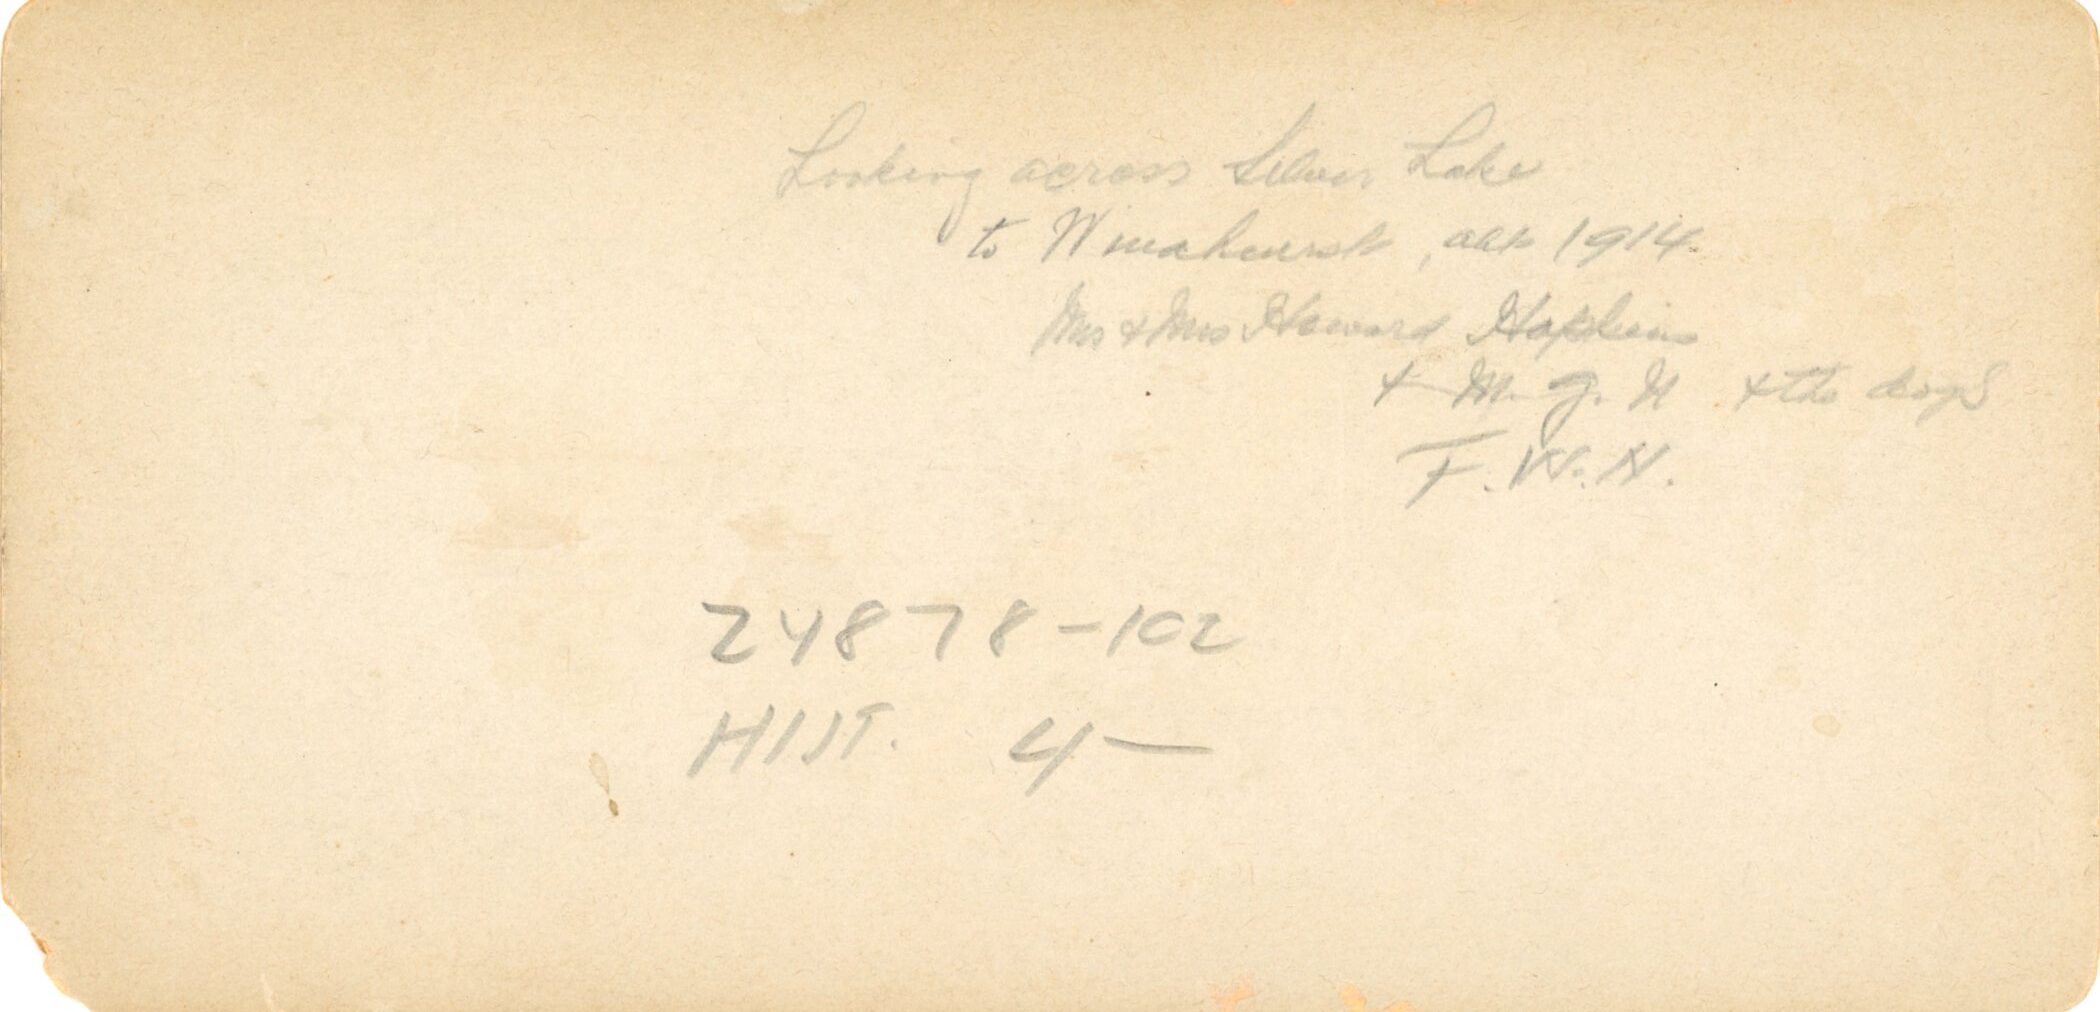 Looking across Silver Lake
to Winahurst, abt 1914.
Mr & Mrs Howard Hopkins
+ M. J. H + the dogs
F. W. H.
24878-102
HIST. 4—